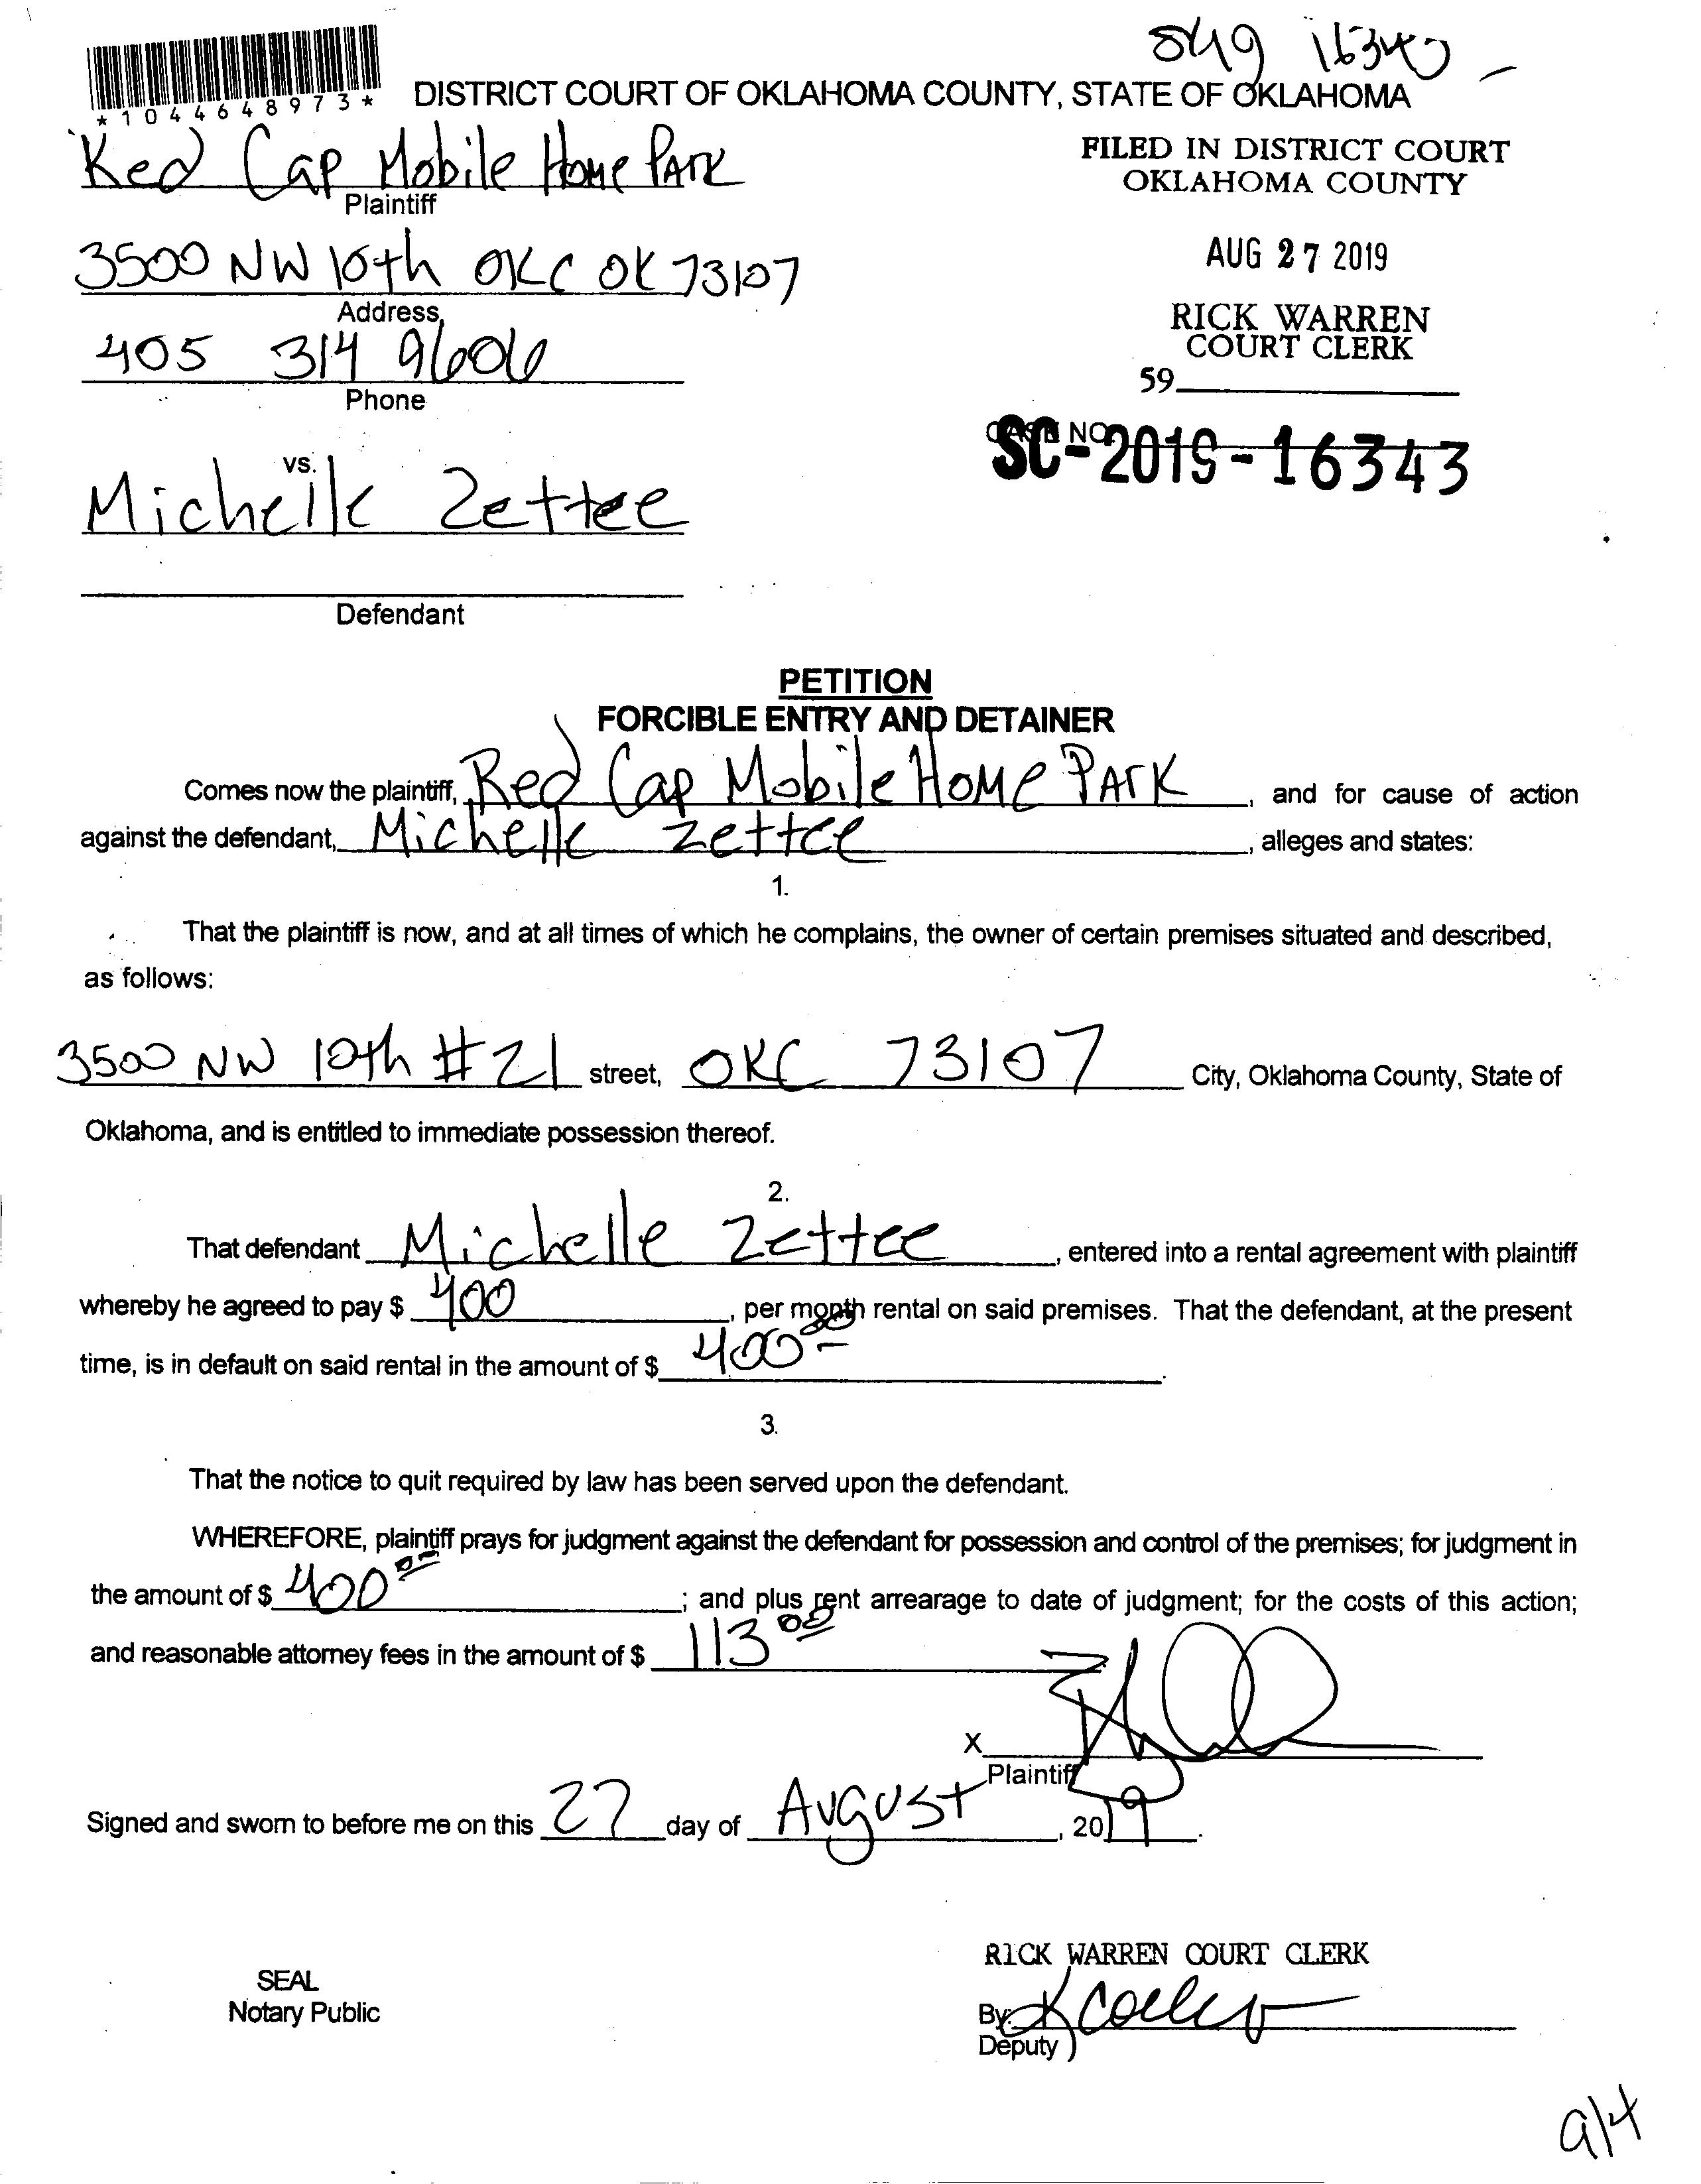 *1044648973*
DISTRICT COURT OF OKLAHOMA COUNTY, STATE OF OKLAHOMA
Red Cap Mobile Home Park
Plaintiff
FILED IN DISTRICT COURT
OKLAHOMA COUNTY
3500 NW 10th OKC OK 73107
Address
AUG 27 2019
405 314 9606
Phone
RICK WARREN
COURT CLERK
59
CASE NO.
SC-2019-16343
vs.
Michelle Zettee
Defendant
PETITION
FORCIBLE ENTRY AND DETAINER
Comes now the plaintiff, Red Cap Mobile Home Park, and for cause of action
against the defendant, Michelle Zettee, alleges and states:
1.
That the plaintiff is now, and at all times of which he complains, the owner of certain premises situated and described,
as follows:
3500 NW 10th #21 street, OKC 73107 City, Oklahoma County, State of
Oklahoma, and is entitled to immediate possession thereof.
2.
That defendant Michelle Zettee, entered into a rental agreement with plaintiff
whereby he agreed to pay $ 400, per month rental on said premises. That the defendant, at the present
time, is in default on said rental in the amount of $ 400 00.
3.
That the notice to quit required by law has been served upon the defendant.
WHEREFORE, plaintiff prays for judgment against the defendant for possession and control of the premises; for judgment in
the amount of $ 400 00; and plus rent arrearage to date of judgment; for the costs of this action;
and reasonable attorney fees in the amount of $ 113 00
X
Plaintiff
Signed and sworn to before me on this 27 day of August, 2019.
RICK WARREN COURT CLERK
SEAL
Notary Public
By:
Deputy
9/4